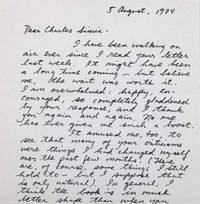 5 August, 1994
Dear Charles Simic,
I have been walking on
air ever since I read your letter
last week. It might have been
a long time coming — but believe
me, the wait was worth it.
I am overwhelmed: happy, en-
couraged, so completely gladdened
by your response, and I thank
you again and again. No one
has ever given me such a boost.
It amused me, too, to
see that many of your criticisms
were things I had changed myself
over the past few months. (There
are, of course, some things I still
hold to — but I suppose that
is only natural). In general, I
the book is in much
better shape than when you